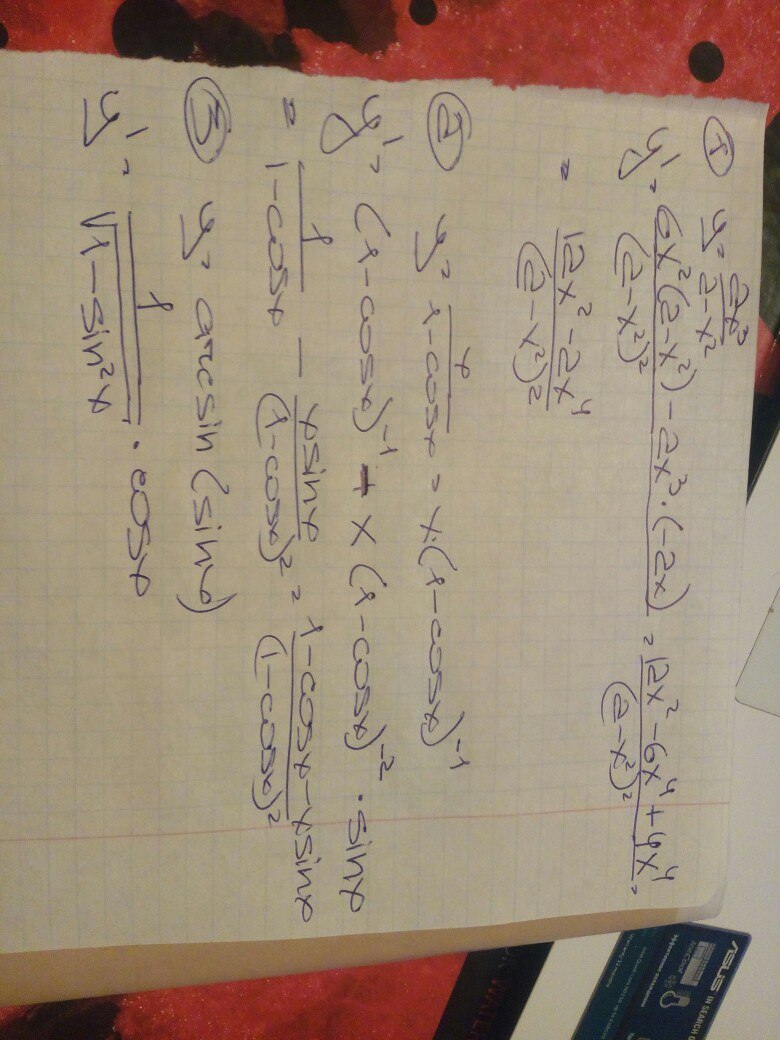 ① y = 2x³/(2-x²)
y' = (6x²(2-x²) - 2x³·(-2x))/(2-x²)² = (12x² - 6x⁴ + 4x⁴)/(2-x²)² =
= (12x² - 2x⁴)/(2-x²)²
② y = x/(1-cosx) = x·(1-cosx)⁻¹
y' = (1-cosx)⁻¹ + x(1-cosx)⁻² · sinx
= 1/(1-cosx) - xsinx/(1-cosx)² = (1-cosx-xsinx)/(1-cosx)²
③ y = arcsin(sinx)
y' = 1/√(1-sin²x) · cosx
ASUS
IN SEARCH O